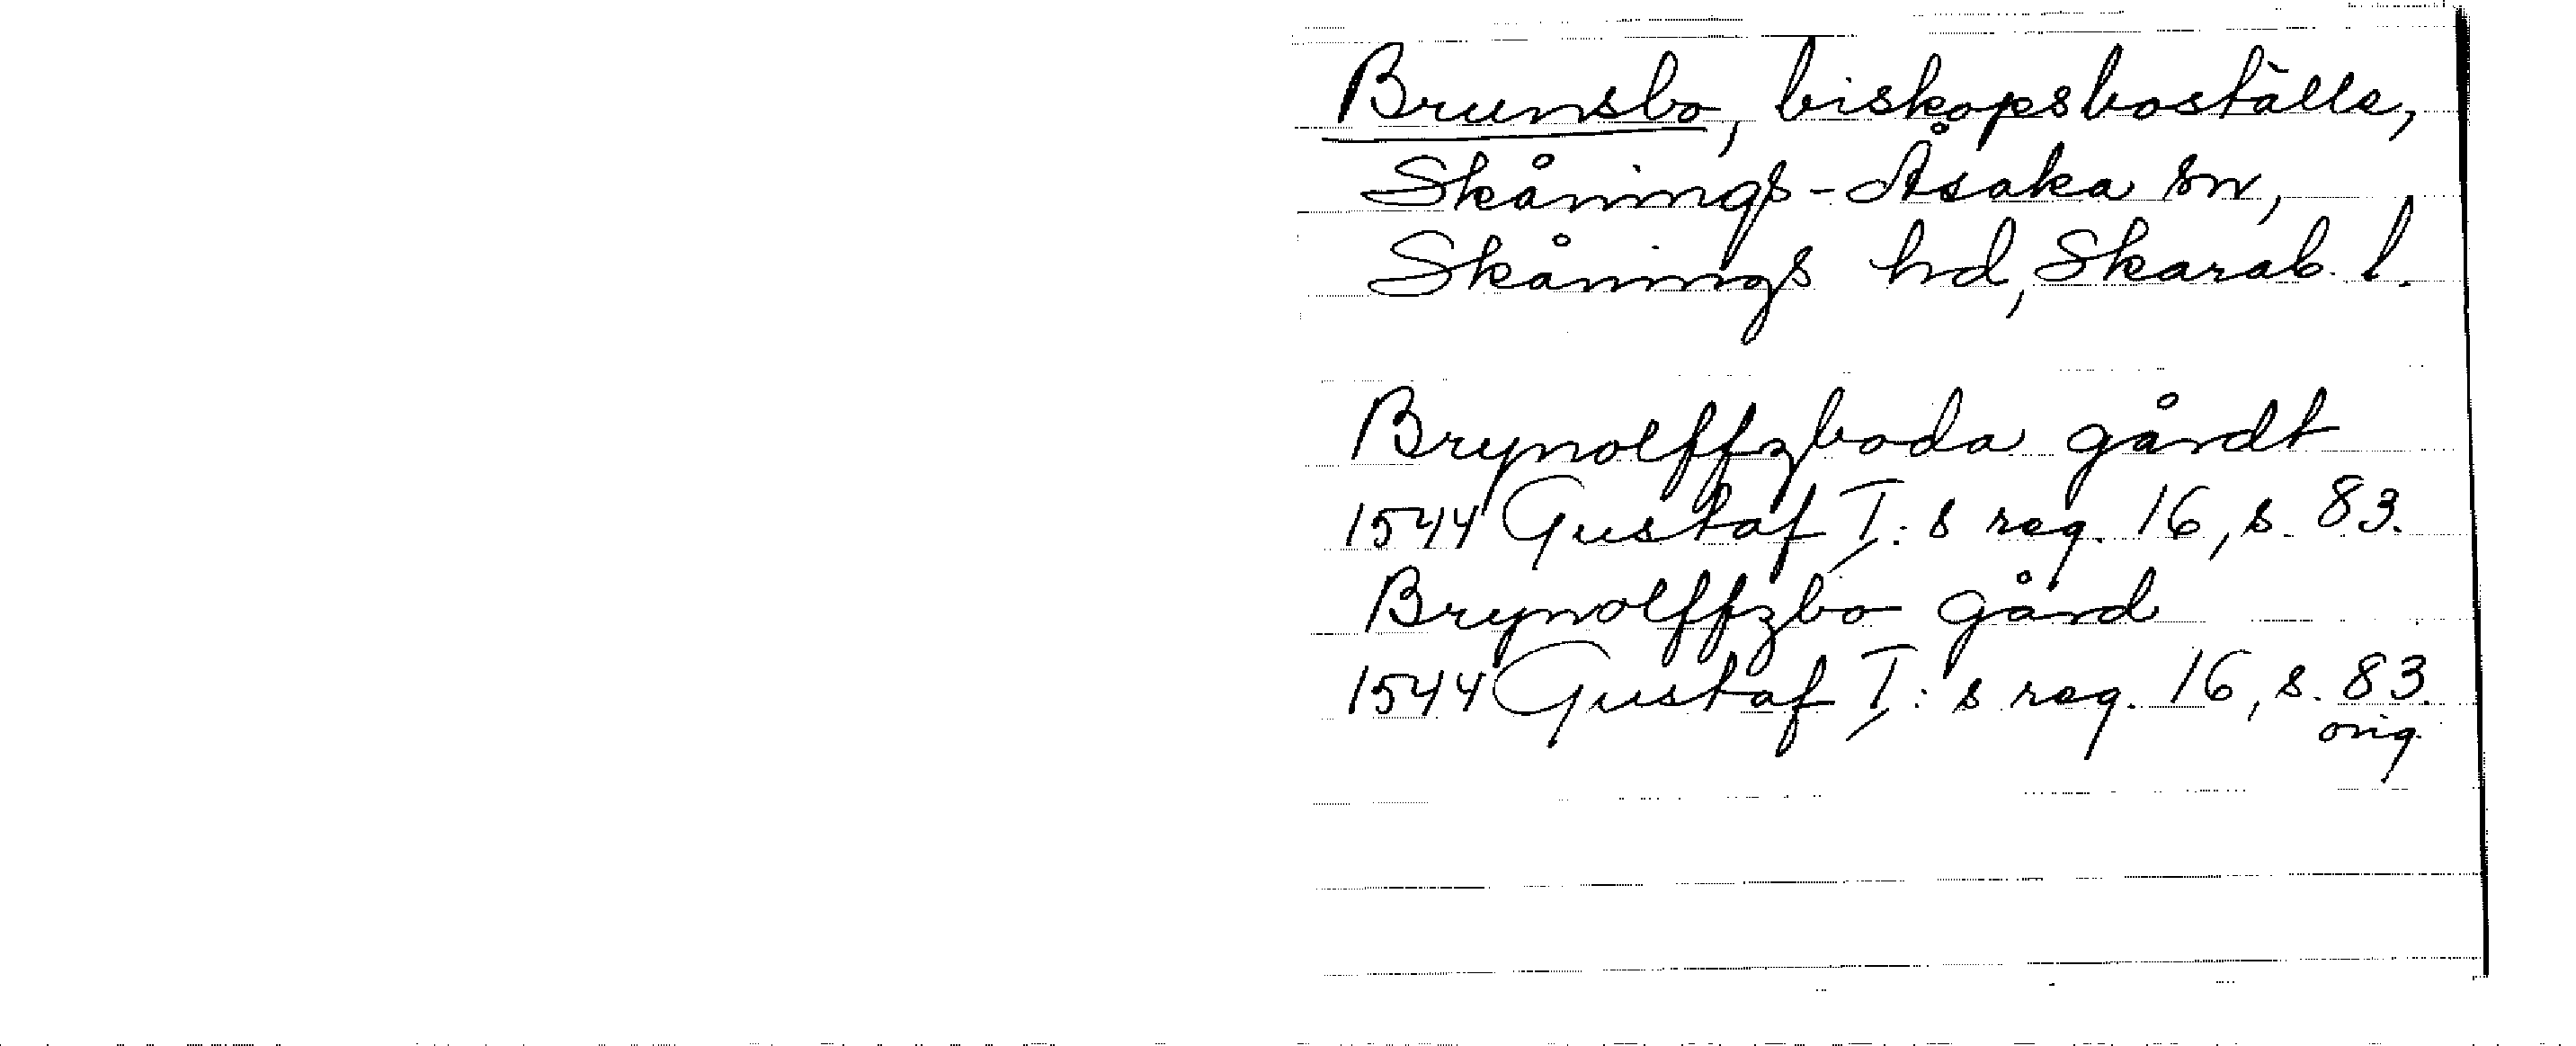 Brunsbo, biskopsboställe,
Skånings-Åsaka sn,
Skånings hd, Skarab. l.
Brynolffzboda gårdt
1544 Gustaf I:s reg. 16, s. 83.
Brynolffzbo gård
1544 Gustaf I:s reg. 16, s. 83.
orig.